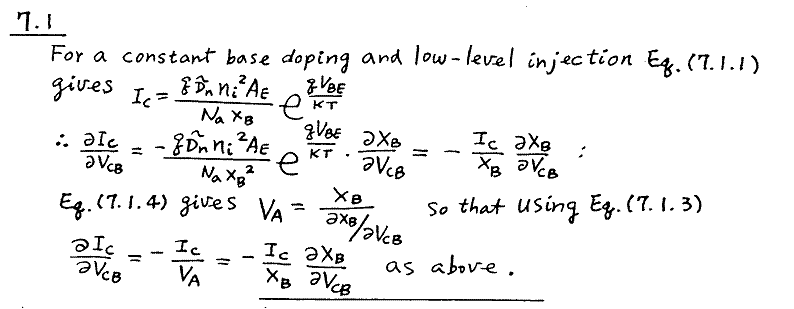 7.1
For a constant base doping and low-level injection Eq. (7.1.1)
gives I_C = \frac{q \tilde{D}_n n_i^2 A_E}{N_a x_B} e^{\frac{qV_{BE}}{KT}}
∴ \frac{∂I_C}{∂V_{CB}} = - \frac{q \tilde{D}_n n_i^2 A_E}{N_a x_B^2} e^{\frac{qV_{BE}}{KT}} · \frac{∂x_B}{∂V_{CB}} = - \frac{I_C}{x_B} \frac{∂x_B}{∂V_{CB}} :
Eq. (7.1.4) gives V_A = \frac{x_B}{∂x_B/∂V_{CB}} so that using Eq. (7.1.3)
\frac{∂I_C}{∂V_{CB}} = - \frac{I_C}{V_A} = - \frac{I_C}{x_B} \frac{∂x_B}{∂V_{CB}} as above.